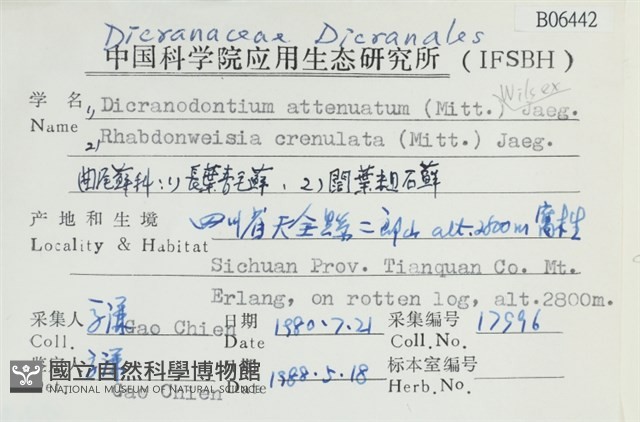 B06442
Dicranaceae Dicranales
中国科学院应用生态研究所 (IFSBH)
学 名 1) Dicranodontium attenuatum (Mitt.) Wils ex Jaeg.
Name 2) Rhabdonweisia crenulata (Mitt.) Jaeg.
曲尾蘚科:1) 長葉青毛蘚、2) 闊葉粗石蘚
产地和生境 四川省天全縣二郎山 alt.2800m 腐木生
Locality & Habitat Sichuan Prov. Tianquan Co. Mt.
Erlang, on rotten log, alt.2800m.
采集人 日期 1980.7.21 采集编号 17996
Coll. Gao Chien Date Coll.No.
鉴定人 日期 1988.5.18 标本室编号
Gao Chien Date Herb.No.
國立自然科學博物館
NATIONAL MUSEUM OF NATURAL SCIENCE